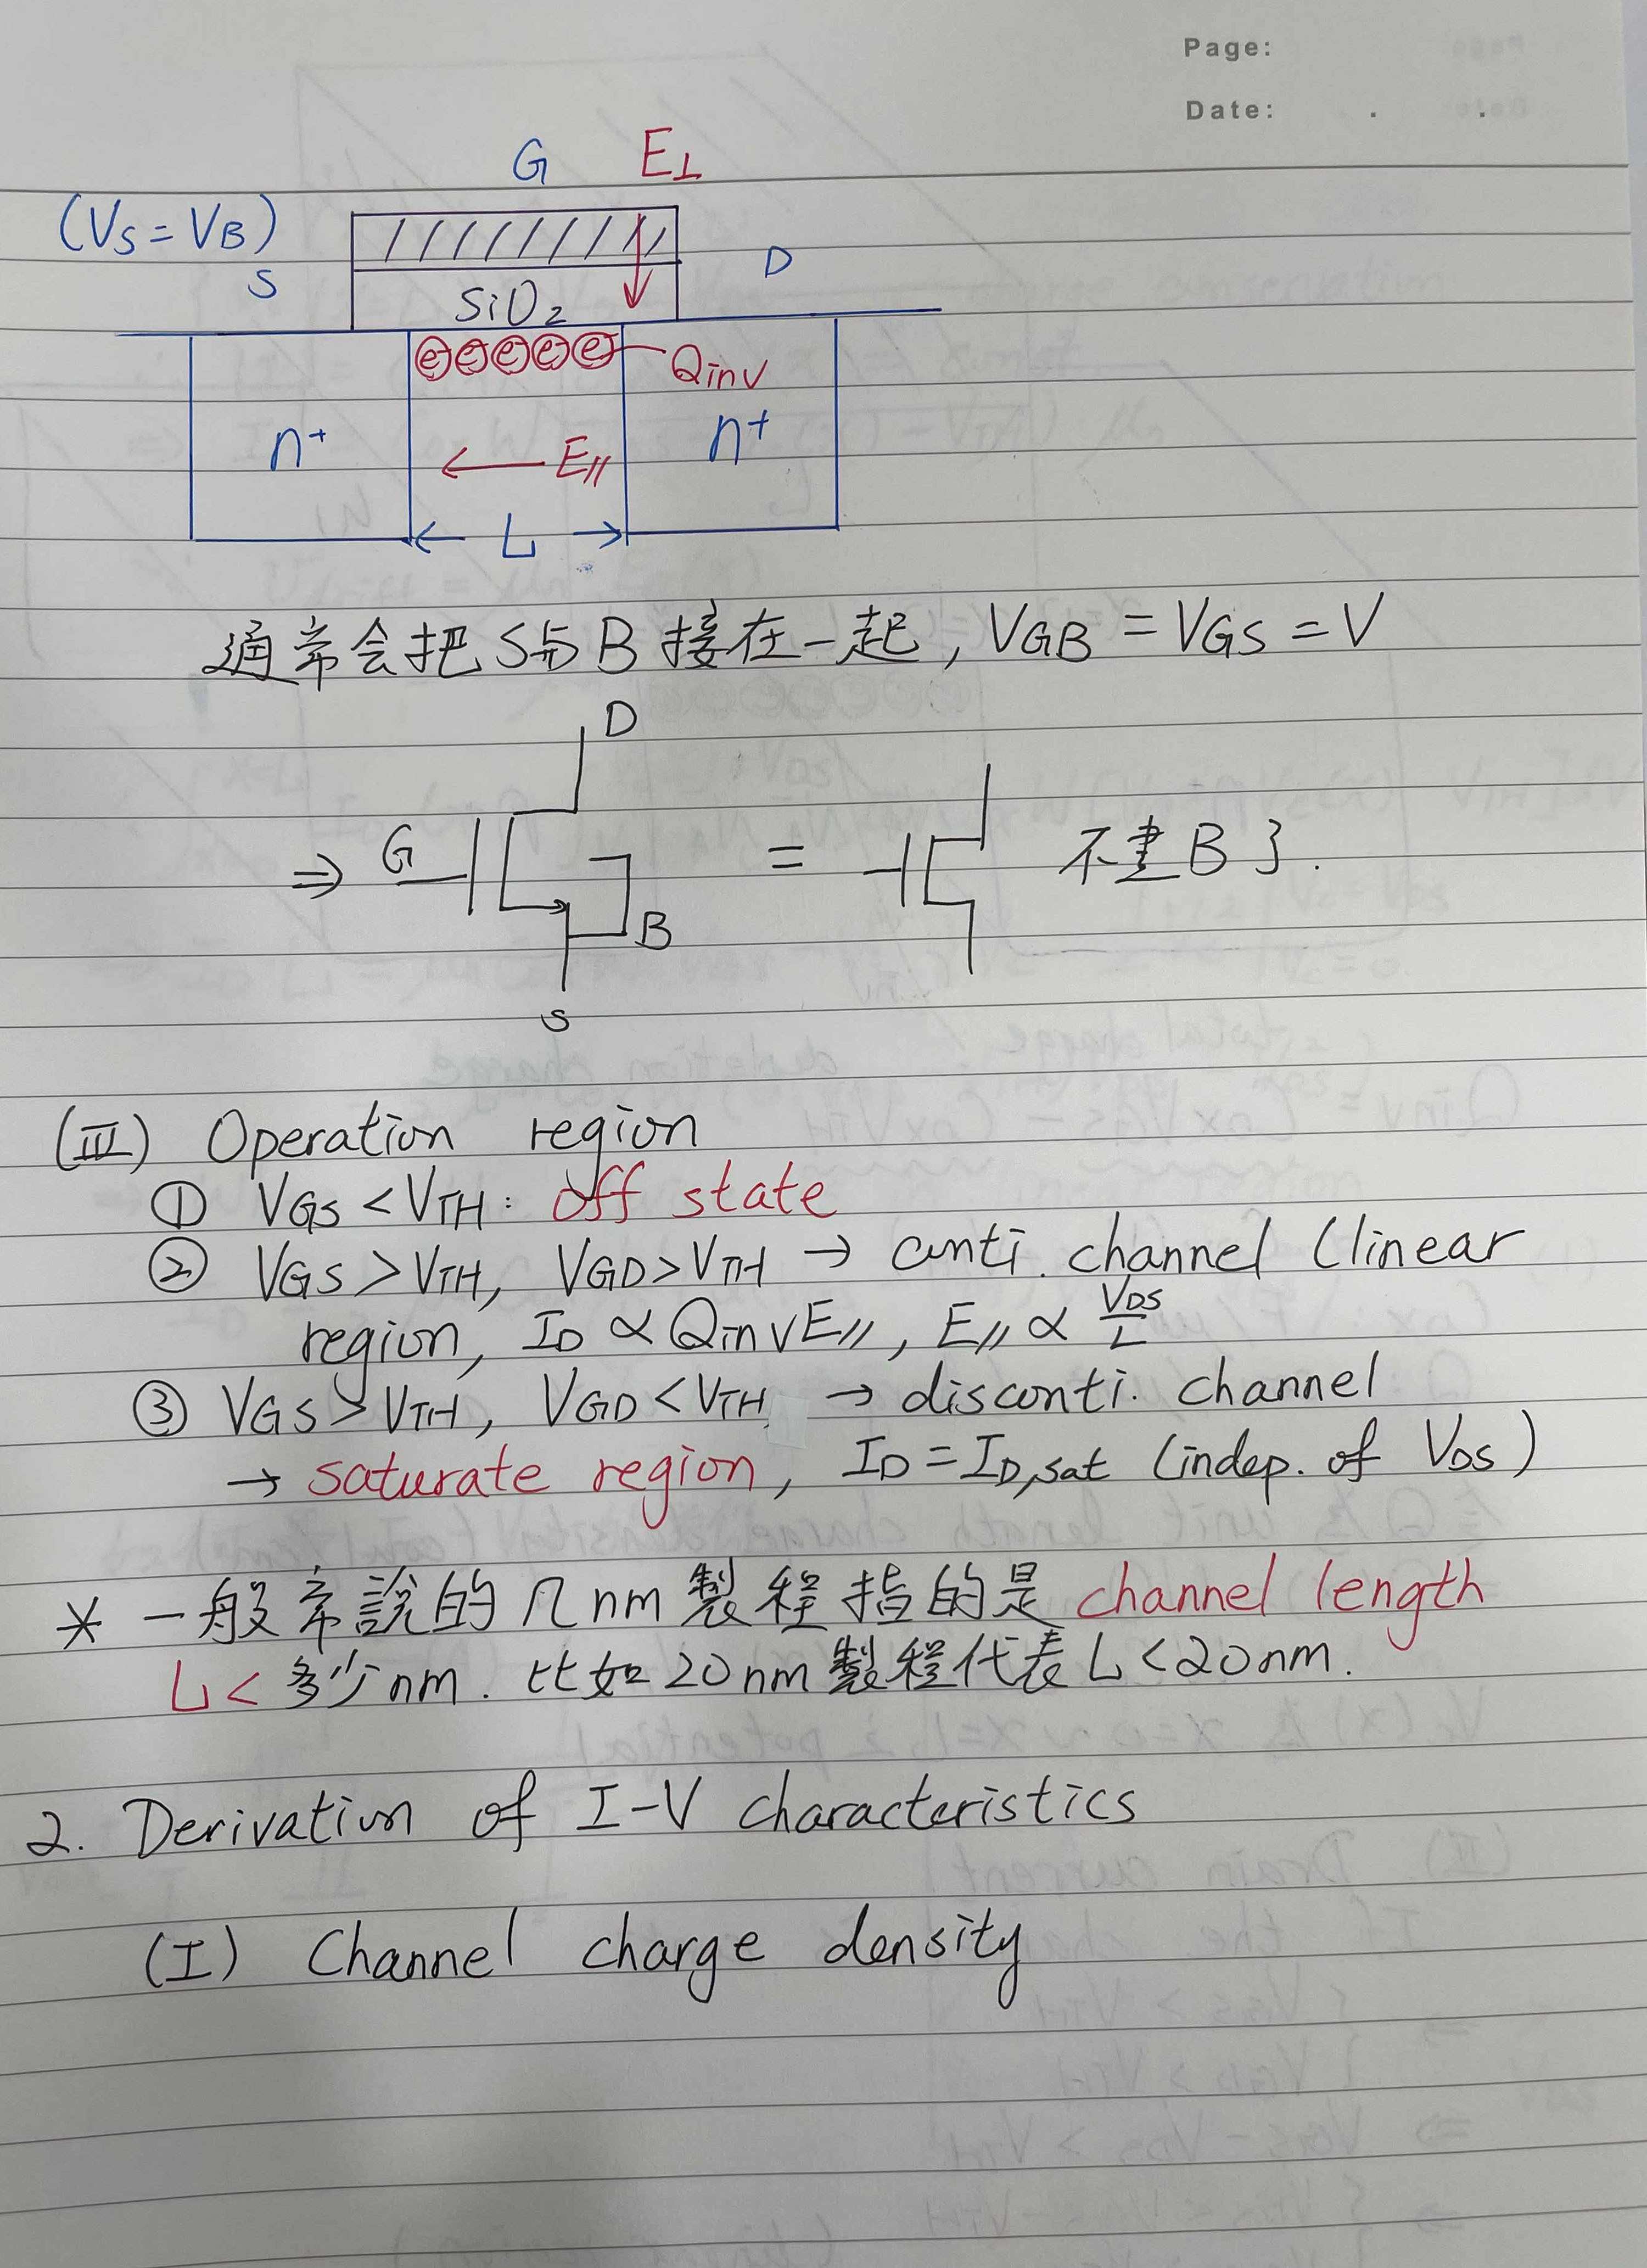 Page:
Date: . .
G E⊥
(VS=VB)
S D
SiO2
e e e e e Qinv
n+ n+
E//
L
通常会把S与B接在一起, VGB = VGS = V
D
⇒ G = 不畫B了.
B
S
(III) Operation region
① VGS < VTH: off state
② VGS > VTH, VGD > VTH → conti. channel (linear
region, ID ∝ QinvE//, E// ∝ VDS/L
③ VGS > VTH, VGD < VTH → disconti. channel
→ saturate region, ID = ID,sat (indep. of VDS)
* 一般常說的几nm製程指的是channel length
L < 多少nm. 比如20nm製程代表L<20nm.
2. Derivation of I-V characteristics
(I) Channel charge density